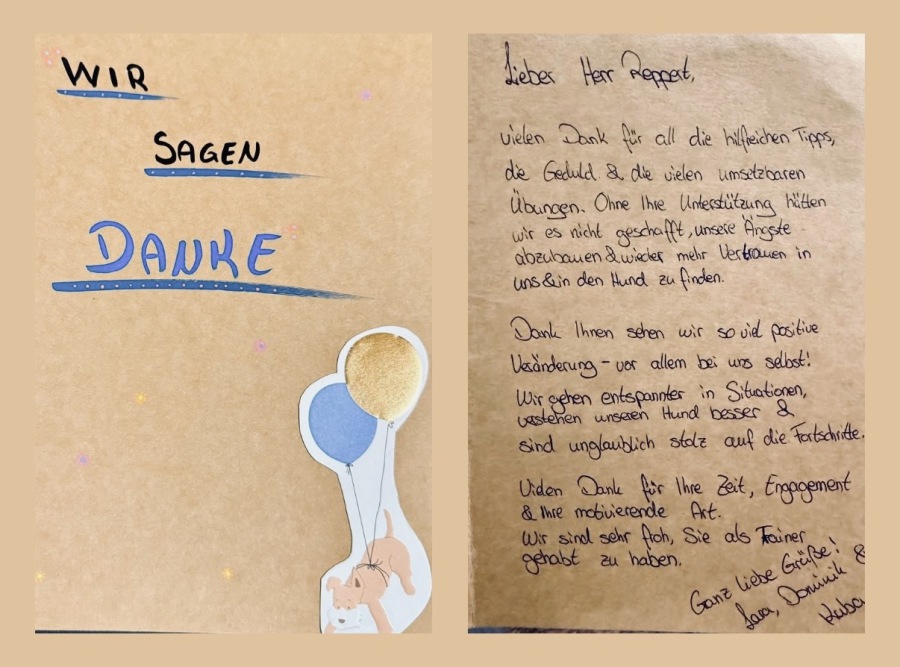 WIR
SAGEN
DANKE
Lieber Herr Reppert,
vielen Dank für all die hilfreichen Tipps,
die Geduld & die vielen umsetzbaren
Übungen. Ohne Ihre Unterstützung hätten
wir es nicht geschafft, unsere Ängste
abzubauen & wieder mehr Vertrauen in
uns & in den Hund zu finden.
Dank Ihnen sehen wir so viel positive
Veränderung – vor allem bei uns selbst!
Wir gehen entspannter in Situationen,
verstehen unseren Hund besser &
sind unglaublich stolz auf die Fortschritte.
Vielen Dank für Ihre Zeit, Engagement
& Ihre motivierende Art.
Wir sind sehr froh, Sie als Trainer
gehabt zu haben.
Ganz liebe Grüße!
Lara, Dominik &